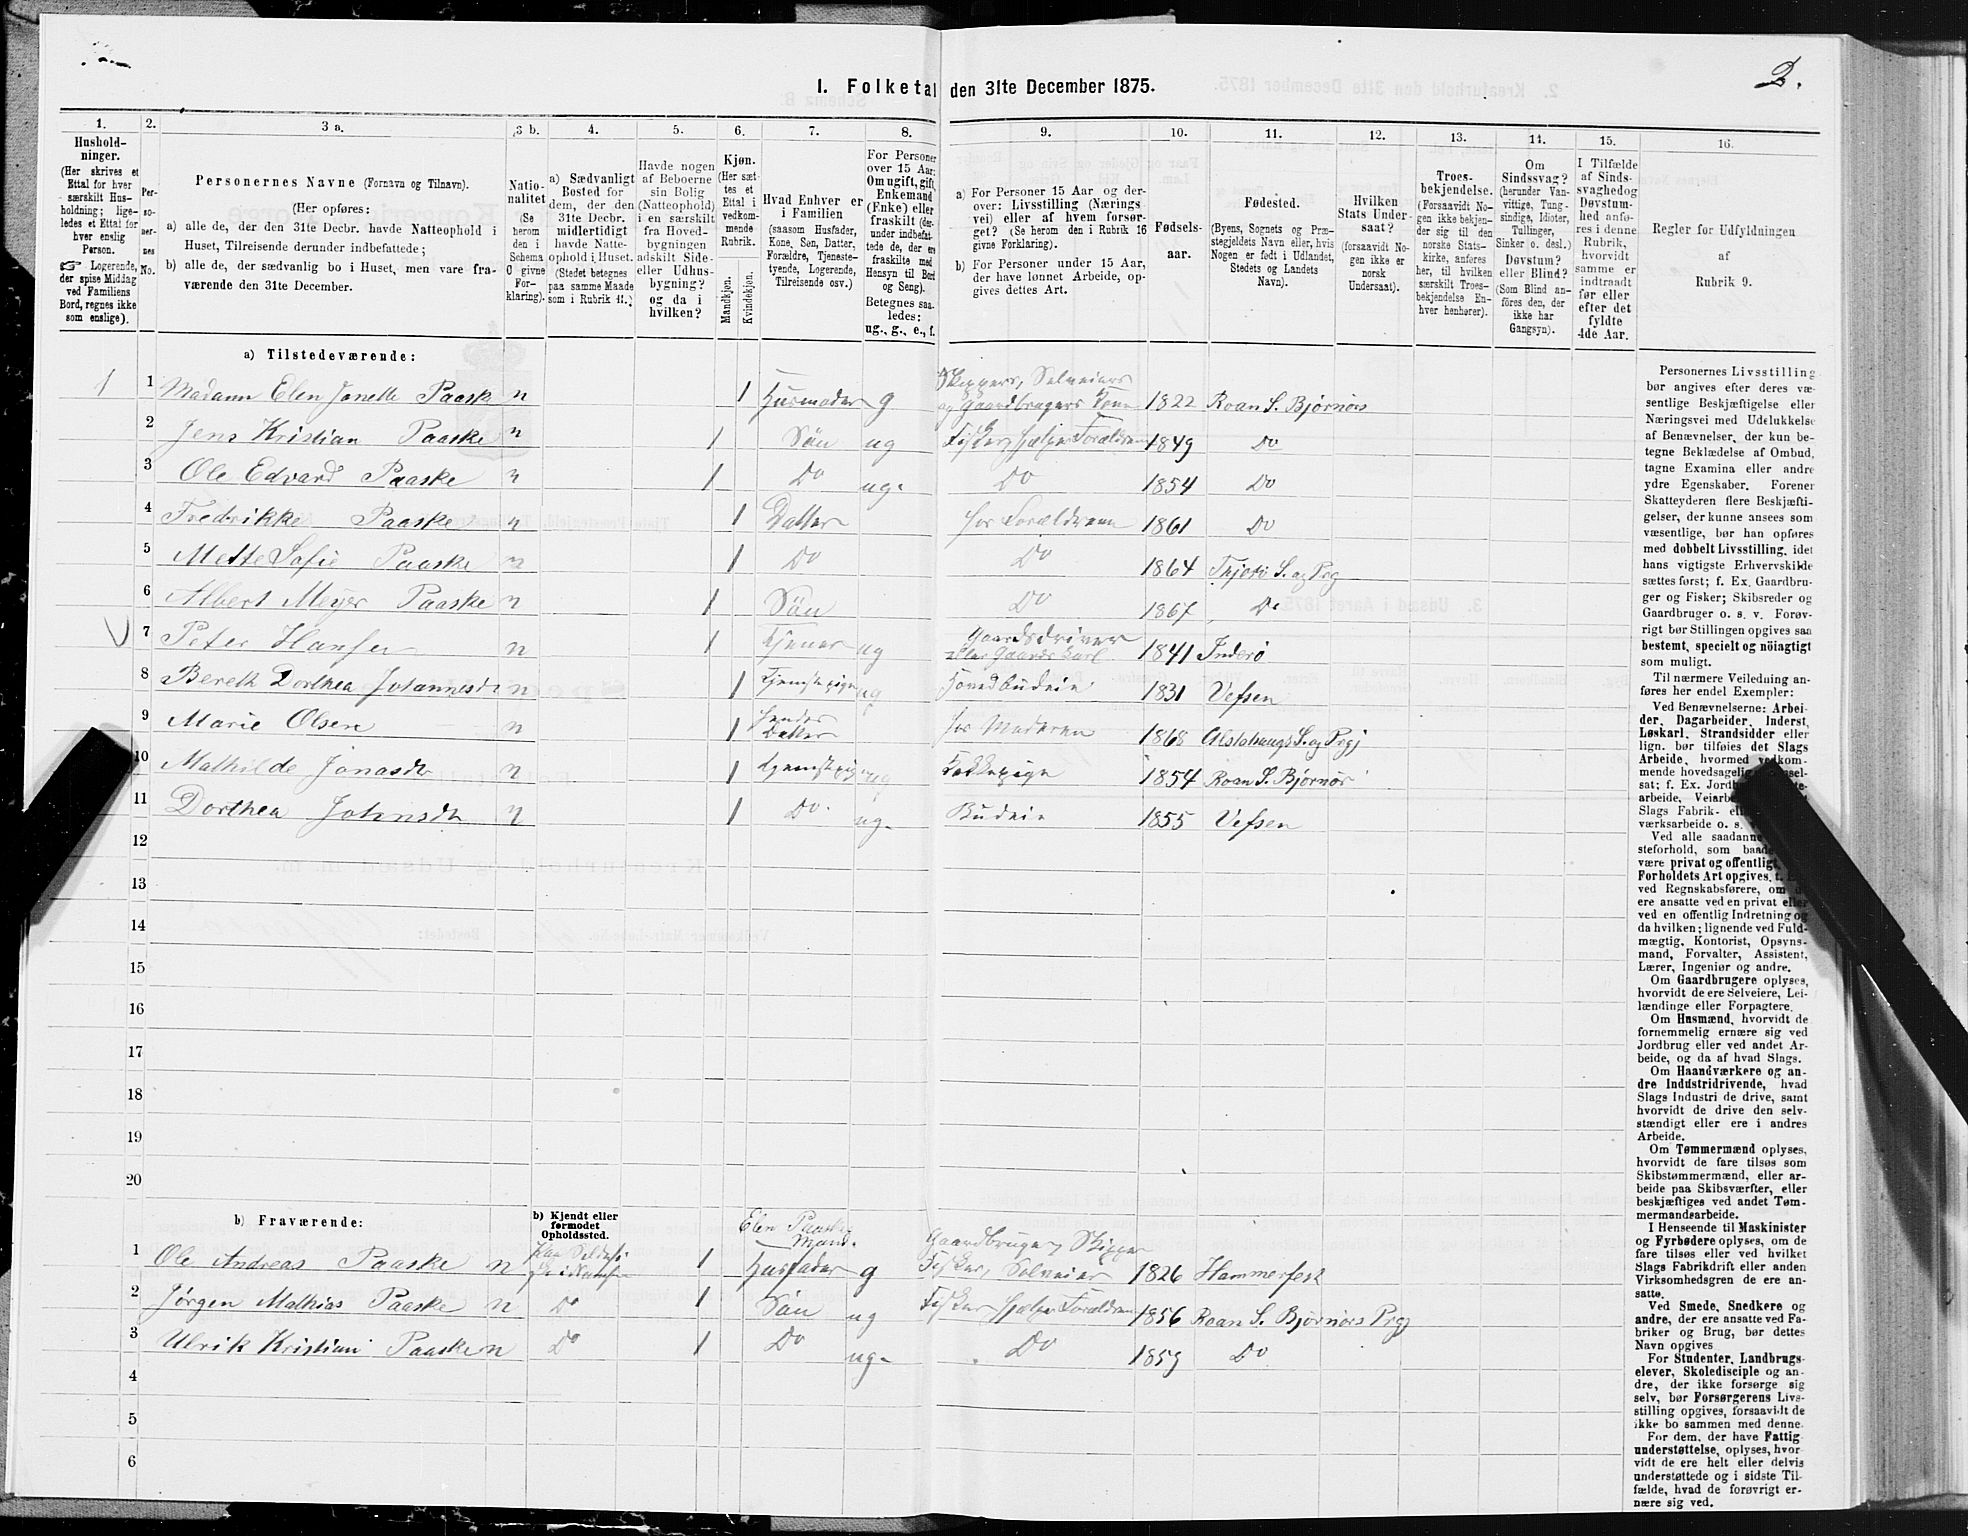 2.
1. Folketal den 31te December 1875.
1. 2. 3 a. 3 b. 4. 5. 6. 7. 8. 9. 10. 11. 12. 13. 14. 15. 16.
Hushold-
ninger.
(Her skrives et
Ettal for hver
særskilt Hus-
holdning; lige-
ledes et Ettal for
hver enslig
Person.
☞ Logerende,
der spise Middag
ved Familiens
Bord, regnes ikke
som enslige).
Per-
so-
ner-
nes
No.
Personernes Navne (Fornavn og Tilnavn).
(Her opføres:
a) alle de, der den 31te Decbr. havde Natteophold i
Huset, Tilreisende derunder indbefattede;
b) alle de, der sædvanlig bo i Huset, men vare fra-
værende den 31te December.
Natio-
nalitet
(Se
herom
den i
Schema
C givne
For-
klaring).
a) Sædvanligt
Bosted for
dem, der den
31te Decbr.
midlertidigt
havde Natte-
ophold i Huset.
(Stedet betegnes
paa samme Maade
som i Rubrik 11.)
Havde nogen
af Beboerne
sin Bolig
(Natteophold)
i en særskilt
fra Hoved-
bygningen
adskilt Side-
eller Udhus-
bygning?
og da i
hvilken?
Kjøn.
(Her sæt-
tes et
Ettal i
vedkom-
mende
Rubrik.
Mandkjøn.
Kvindekjøn.
Hvad Enhver er
i Familien
(saasom Husfader,
Kone, Søn, Datter,
Forældre, Tjeneste-
tyende, Logerende,
Tilreisende osv.)
For Personer
over 15 Aar:
Om ugift, gift,
Enkemand
(Enke) eller
fraskilt (der-
under indbefat-
tede de, der ere
fraskilte med
Hensyn til Bord
og Seng).
Betegnes saa-
ledes:
ug., g., e., f.
a) For Personer 15 Aar og der-
over: Livsstilling (Nærings-
vei) eller af hvem forsør-
get? (Se herom den i Rubrik 16
givne Forklaring).
b) For Personer under 15 Aar,
der have lønnet Arbeide, op-
gives dettes Art.
Fødsels-
aar.
Fødested.
(Byens, Sognets og Præ-
stegjeldets Navn eller, hvis
Nogen er født i Udlandet,
Stedets og Landets
Navn).
Hvilken
Stats Under-
saat?
(forsaavidt No-
gen ikke er
norsk
Undersaat).
Troes-
bekjendelse.
(Forsaavidt No-
gen ikke bekjen-
der sig til den
norske Stats-
kirke, anføres
her, til hvilken
særskilt Troes-
bekjendelse En-
hver henhører).
Om
Sindssvag?
(herunder Van-
vittige, Tung-
sindige, Idioter,
Tullinger,
Sinker o. desl.)
Døvstum?
eller Blind?
(Som Blind an-
føres den, der
ikke har
Gangsyn).
I Tilfælde
af Sinds-
svaghedog
Døvstum-
hed anfø-
res i denne
Rubrik,
hvorvidt
samme er
indtraadt
før eller
efter det
fyldte
4de Aar.
Regler for Udfyldningen
af
Rubrik 9.
a) Tilstedeværende:
1 1 Madam Elen Janette Paaske n 1 Husmoder g Skippers, Selveiers og Gaardbrugers Kone 1822 Roan S. Bjørnørs
2 Jens Kristian Paaske n 1 Søn ug Fisker, hjelper Forældrene 1849 Do
3 Ole Edvard Paaske n 1 Do ug. Do 1854 Do
4 Fredrikke Paaske n 1 Datter hos Forældrene 1861 Do
5 Mette Sofie Paaske n 1 Do Do 1864 Thjøtø S. og Prg
6 Albert Meyer Paaske n 1 Søn Do 1867 Do
7 Peter Hansen n 1 Tjener ug Gaardsdriver eller Gaards Karl 1841 Inderø
8 Bereth Dorthea Johannesdr n 1 Tjenstepige ug Hovedbudeie 1831 Vefsen
9 Marie Olsen n 1 Hendes Datter hos Moderen 1868 Alstahaugs S. og Prgj
10 Mathilde Jonasdr n 1 Tjenstepige ug Kokkepige 1854 Roan S. Bjørnør
11 Dorthea Johnsdr n 1 Do. ug. Budeie 1855 Vefsen
12
13
14
15
16
17
18
19
20
b) Fraværende:
b) Kjendt eller
formodet
Opholdssted.
1 Ole Andreas Paaske n 1 Elen Paaskes Mand. Husfader g Gaardbruger, Skipper Fisker, Selveier 1826 Hammerfest
2 Jørgen Mathias Paaske n Do 1 Søn ug Fisker, hjelper Forældrene 1856 Roan S. Bjørnørs Prgj
3 Ulrik Kristian Paaske n Do 1 Do ug. Do 1859 Do
4
5
6
Personernes Livsstilling
bør angives efter deres væ-
sentlige Beskjæftigelse eller
Næringsvei med Udelukkelse
af Benævnelser, der kun be-
tegne Beklædelse af Ombud,
tagne Examina eller andre
ydre Egenskaber. Forener
Skatteyderen flere Beskjæfti-
gelser, der kunne ansees som
væsentlige, bør han opføres
med dobbelt Livsstilling, idet
hans vigtigste Erhvervskilde
sættes først; f. Ex. Gaardbru-
ger og Fisker; Skibsreder og
Gaardbruger o. s. v. Forøv-
rigt bør Stillingen opgives saa
bestemt, specielt og nöiagtigt
som muligt.
Til nærmere Veiledning an-
føres her endel Exempler:
Ved Benævnelserne: Arbei-
der, Dagarbeider, Inderst,
Løskarl, Strandsidder eller
lign. bør tilføies det Slags
Arbeide, hvormed vedkom-
mende hovedsagelig
sat; f. Ex.
arbeide,
Slags Fabrik-
værksarbeide o. s.
Ved alle saadanne
steforhold, som
være privat og offentligt,
Forholdets Art opgives,
ved Regnskabsførere, om
ere ansatte ved en privat eller
ved en offentlig Indretning og
da hvilken; lignende ved Fuld-
mægtig, Kontorist, Opsyns-
mand, Forvalter, Assistent,
Lærer, Ingeniør og andre.
Om Gaardbrugere oplyses,
hvorvidt de ere Selveiere, Lei-
lændinge eller Forpagtere.
Om Husmænd, hvorvidt de
fornemmelig ernære sig ved
Jordbrug eller ved andet Ar-
beide, og da af hvad Slags.
Om Haandværkere og an-
dre Industridrivende, hvad
Slags Industri de drive, samt
hvorvidt de drive den selv-
stændigt eller ere i andres
Arbeide.
Om Tømmermænd oplyses,
hvorvidt de fare tilsøs som
Skibstømmermænd, eller ar-
beide paa Skibsværfter, eller
beskjæftiges ved andet Tøm-
mermandsarbeide.
I Henseende til Maskinister
og Fyrbødere oplyses, om de
fare tilsøs eller ved hvilket
Slags Fabrikdrift eller anden
Virksomhedsgren de ere an-
satte.
Ved Smede, Snedkere og
andre, der ere ansatte ved Fa-
briker og Brug, bør dettes
Navn opgives
For Studenter, Landbrugs-
elever, Skoledisciple og an-
dre, der ikke forsørge sig
selv, bør Forsørgerens Livs-
stilling opgives, forsaavidt de
ikke bo sammen med denne.
For dem, der have Fattig-
understøttelse, oplyses, hvor-
vidt de ere helt eller delvis
understøttede og i sidste Til-
fælde, hvad de forøvrigt er-
nære sig ved.